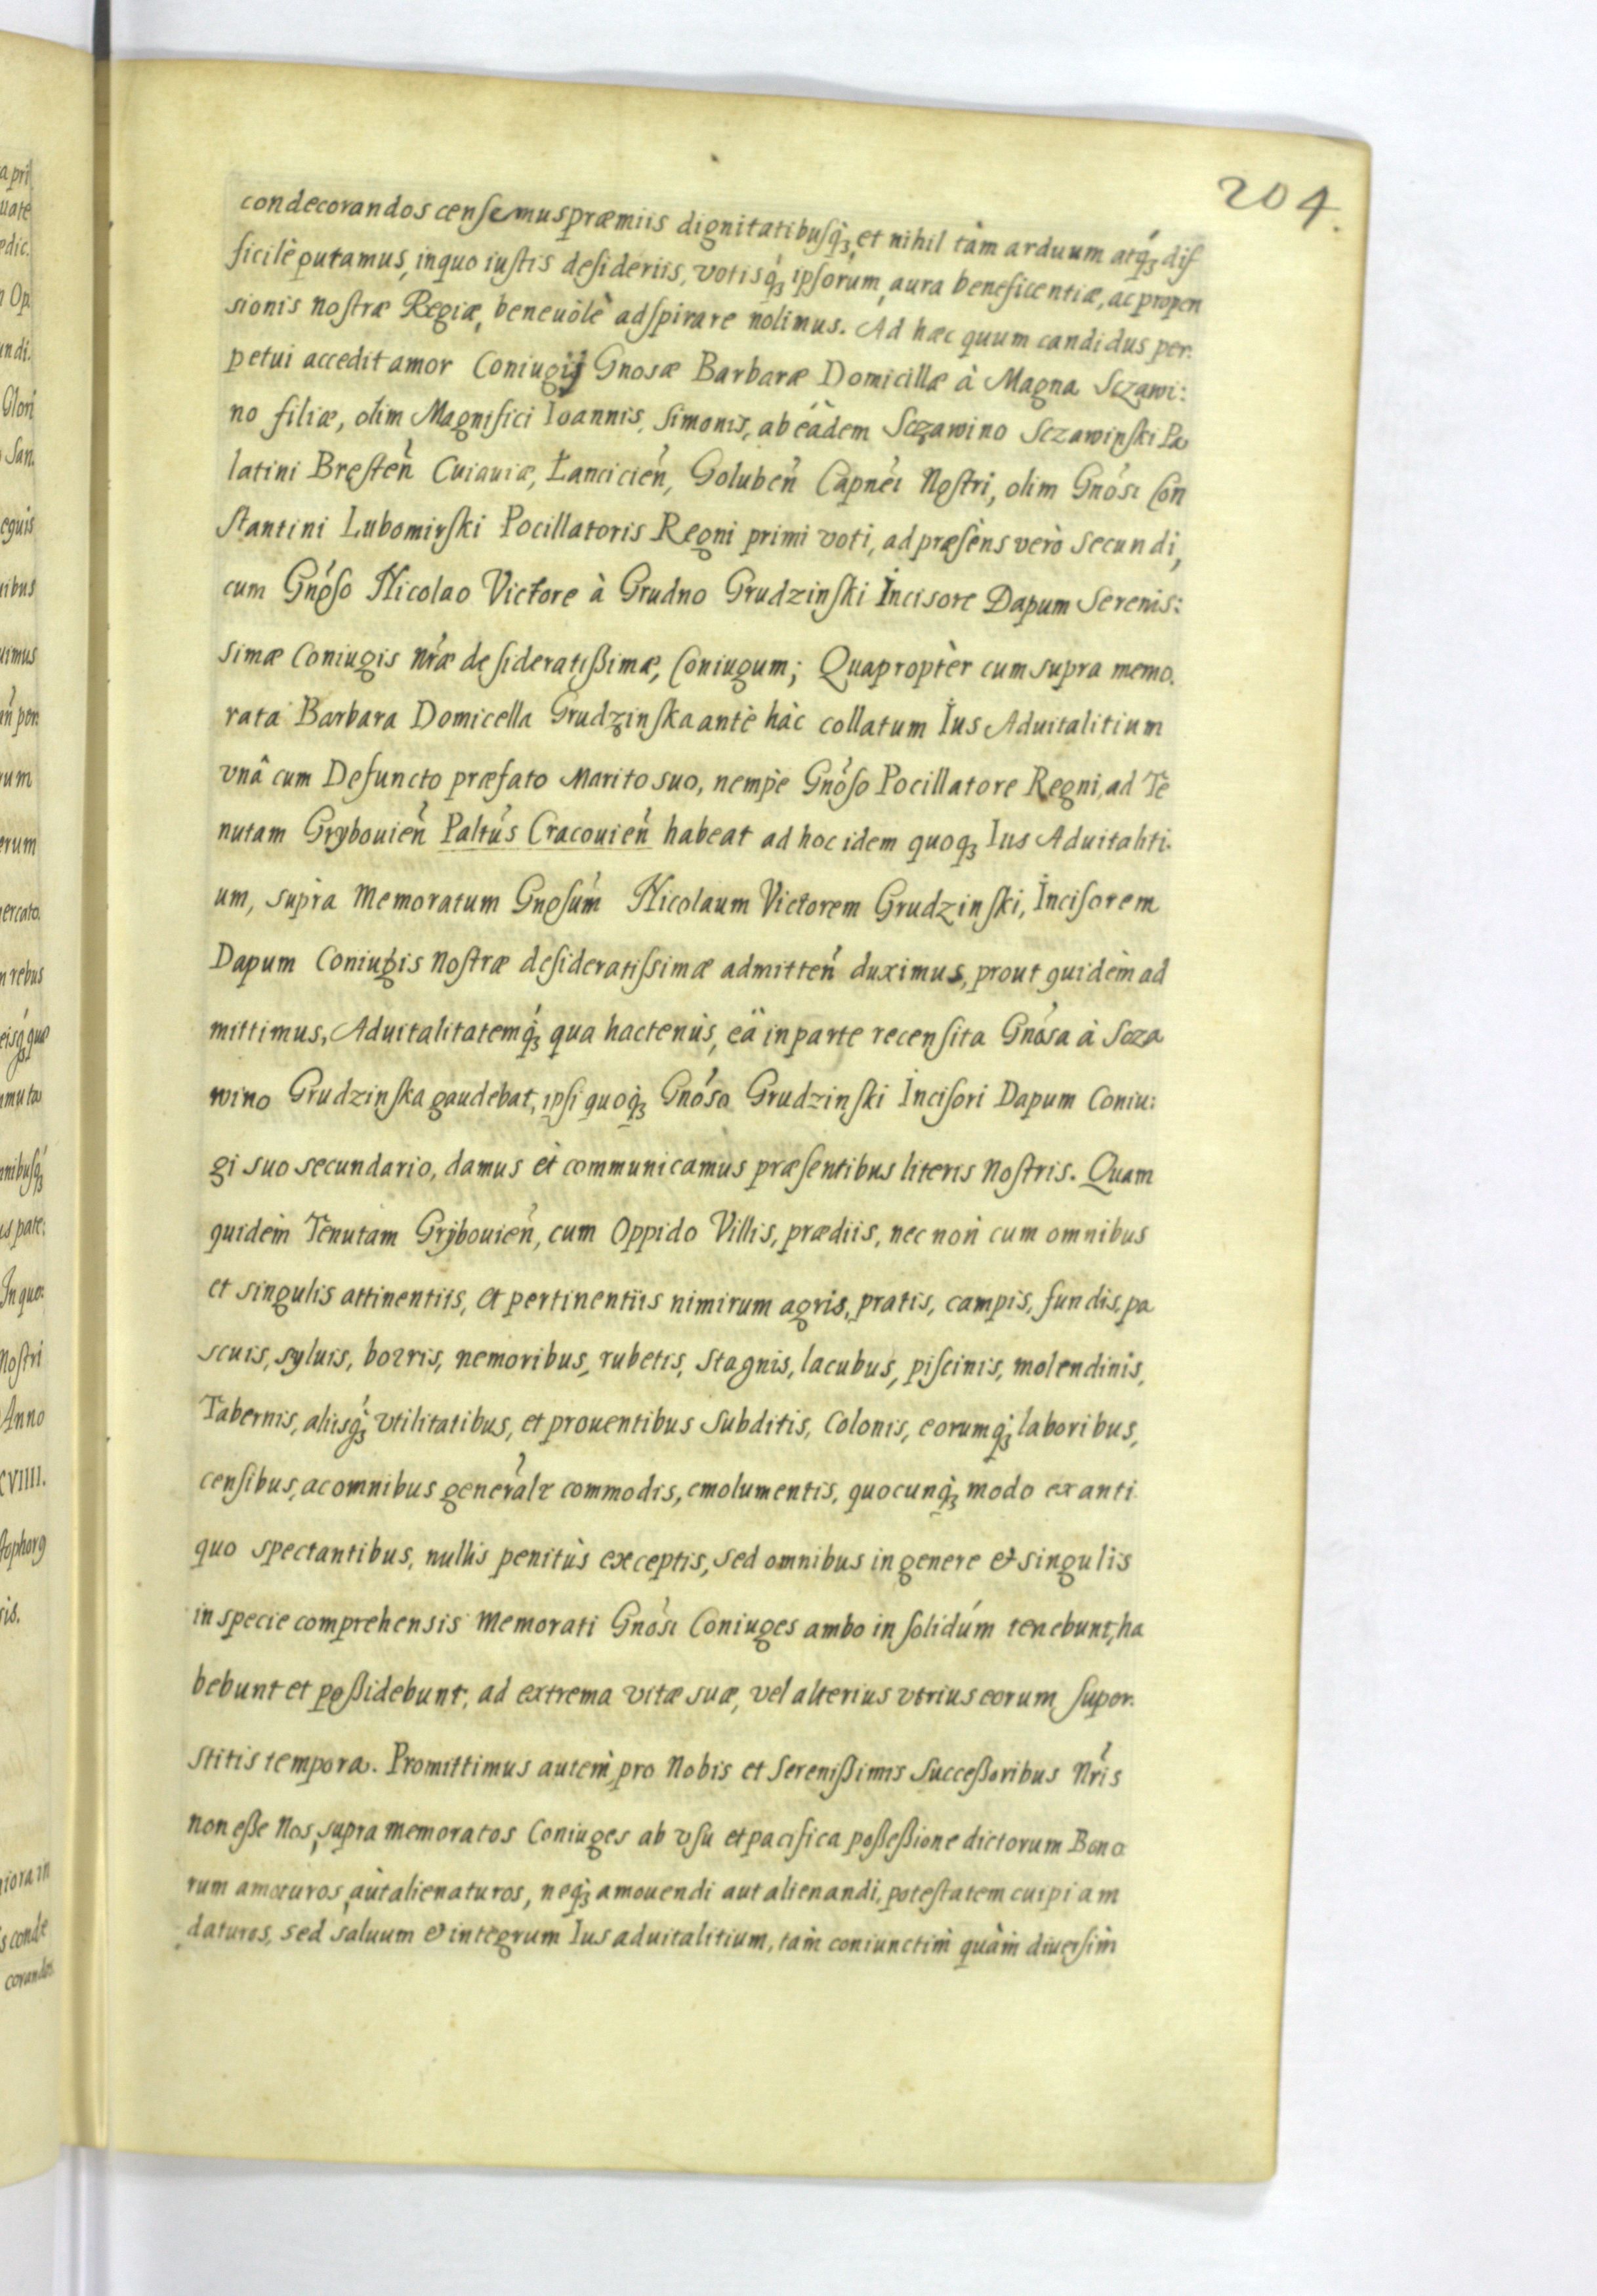 204.
condecorandos censemus præmiis dignitatibusq́ꝫ, et nihil tàm arduum atq́ꝫ dif
ficilè putamus, in quo iustis desideriis, votisq́ꝫ ipsorum, aura beneficentiæ, ac propen
sionis nostræ Regiæ, beneuolè adspirare nolimus. Ad hæc quum candidus per:
petui accedit amor Coniugij Gnosæ Barbaræ Domicillæ à Magna Sczawi:
no filiæ, olim Magnifici Ioannis, Simonis, ab eâdem Sczawino Sczawinski Pa
latini Bresteń Cuiauiæ, Łancicień, Golubeń Capnéi Nostri, olim Gnósi Con
stantini Lubomirski Pocillatoris Regni primi voti, ad præsèns verò secundi,
cum Gnóso Nicolao Victore à Grudno Grudzinski Incisore Dapum Serenis:
simæ Coniugis nŕæ desideratißimæ, Coniugum; Quaproptèr cum supra memo.
rata Barbara Domicella Grudzinska antè hàc collatum Ius Aduitalitium
vnâ cum Defuncto præfato Marito suo, nempè Gnóso Pocillatore Regni, ad Te
nutam Grybouień Paltús Cracouień habeat ad hoc idem quoqꝫ Ius Aduitaliti.
um, supra Memoratum Gnosúm Nicolaum Victorem Grudzinski, Incisorem
Dapum Coniugis Nostræ desideratissimæ admitteń duximus, prout quidèm ad
mittimus, Aduitalitatemq́ꝫ qua hactenùs, eâ in parte recensita Gnósa à Scza
wino Grudzinska gaudebat, ipsi quoq̀ꝫ Gnóso Grudzinski Incisori Dapum Coniu:
gi suo secundario, damus et communicamus præsentibus literis Nostris. Quam
quidèm Tenutam Grÿbouień, cum Oppido Villis, prædiis, nec non cum omnibus
et singulis attinentiis, et pertinentiis nimirum agris, pratis, campis, fundis, pa
scuis, syluis, borris, nemoribus, rubetis, stagnis, lacubus, piscinis, molendinis,
Tabernis, aliisq́ꝫ vtilitatibus, et prouentibus Subditis, Colonis, eorumq̀ꝫ laboribus,
censibus, ac omnibus generálr commodis, emolumentis, quocunq̀ꝫ modo ex anti
quo spectantibus, nullis penitùs exceptis, sed omnibus in genere et singulis
in specie comprehensis Memorati Gnósi Coniuges ambo in solidúm tenebunt, ha
bebunt et poßidebunt, ad extrema vitæ suæ, vel alterius vtrius eorum super.
stitis tempora. Promittimus autem pro Nobis et Serenißimis Succeßoribus Nŕis
non eße Nos, supra memoratos Coniuges ab vsu et pacifica poßeßione dictorum Bono
rum amoturos, aùt alienaturos, neq̀ꝫ amouendi aut alienandi, potestatem cuipiam
daturos, sed saluum et integrum Ius aduitalitium, tàm coniunctìm quàm diuersìm